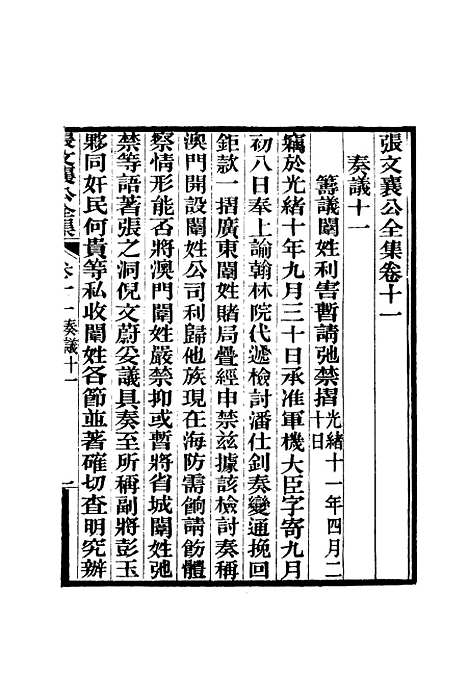 張文襄公全集卷十一
奏議十一
籌議闈姓利害暫請弛禁摺光緒十一年四月二
十日
竊於光緒十年九月三十日承准軍機大臣字寄九月
初八日奉上諭翰林院代遞檢討潘仕釗奏變通挽回
鉅款一摺廣東闈姓賭局疊經申禁茲據該檢討奏稱
澳門開設闈姓公司利歸他族現在海防需餉請飭體
察情形能否將澳門闈姓嚴禁抑或暫將省城闈姓弛
禁等語著張之洞倪文蔚妥議具奏至所稱副將彭玉
夥同奸民何貴等私收闈姓各節並著確切查明究辦
張文襄公全集 卷十一 奏議十一 一